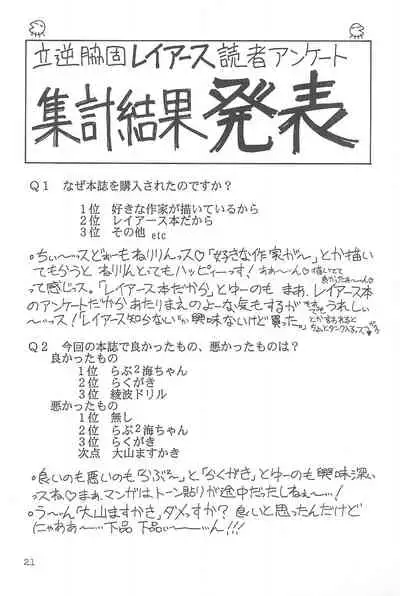 立逆脇固レイアース読者アンケート
集計結果発表
Q1 なぜ本誌を購入されたのですか？
1位 好きな作家が描いているから
2位 レイアース本だから
3位 その他 etc
○ちぃ〜ッスどぉーもねりりんッス♡「好きな作家が〜」とか描い
てもらうと ねりりんとってもハッピィーっす! ああ〜ん♡描いてて
良かったあ〜ん♡
って感じっス。「レイアース本だから」とゆーのも まあ、レイアース本
のアンケートだからあたりまえのよーな気もするが うれしぃ
〜ッス!「レイアース知らないが興味ないけど買った。」
とか言われると
Q2 今回の本誌で良かったもの、悪かったものは？
良かったもの
1位 らぶ2海ちゃん
2位 らくがき
3位 綾波ドリル
悪かったもの
1位 無し
2位 らぶ2海ちゃん
3位 らくがき
次点 大山ますかき
○良いのも悪いのも「らぶ〜」と「らくがき」とゆーのも興味深い
ッスね♡まぁ、マンガはトーン貼りが途中だったしねぇ〜…!
○う〜ん「大山ますかき」ダメっすか? 良いと思ったんだけど
にゃああ〜……下品 下品ぃーーーん!!!
21